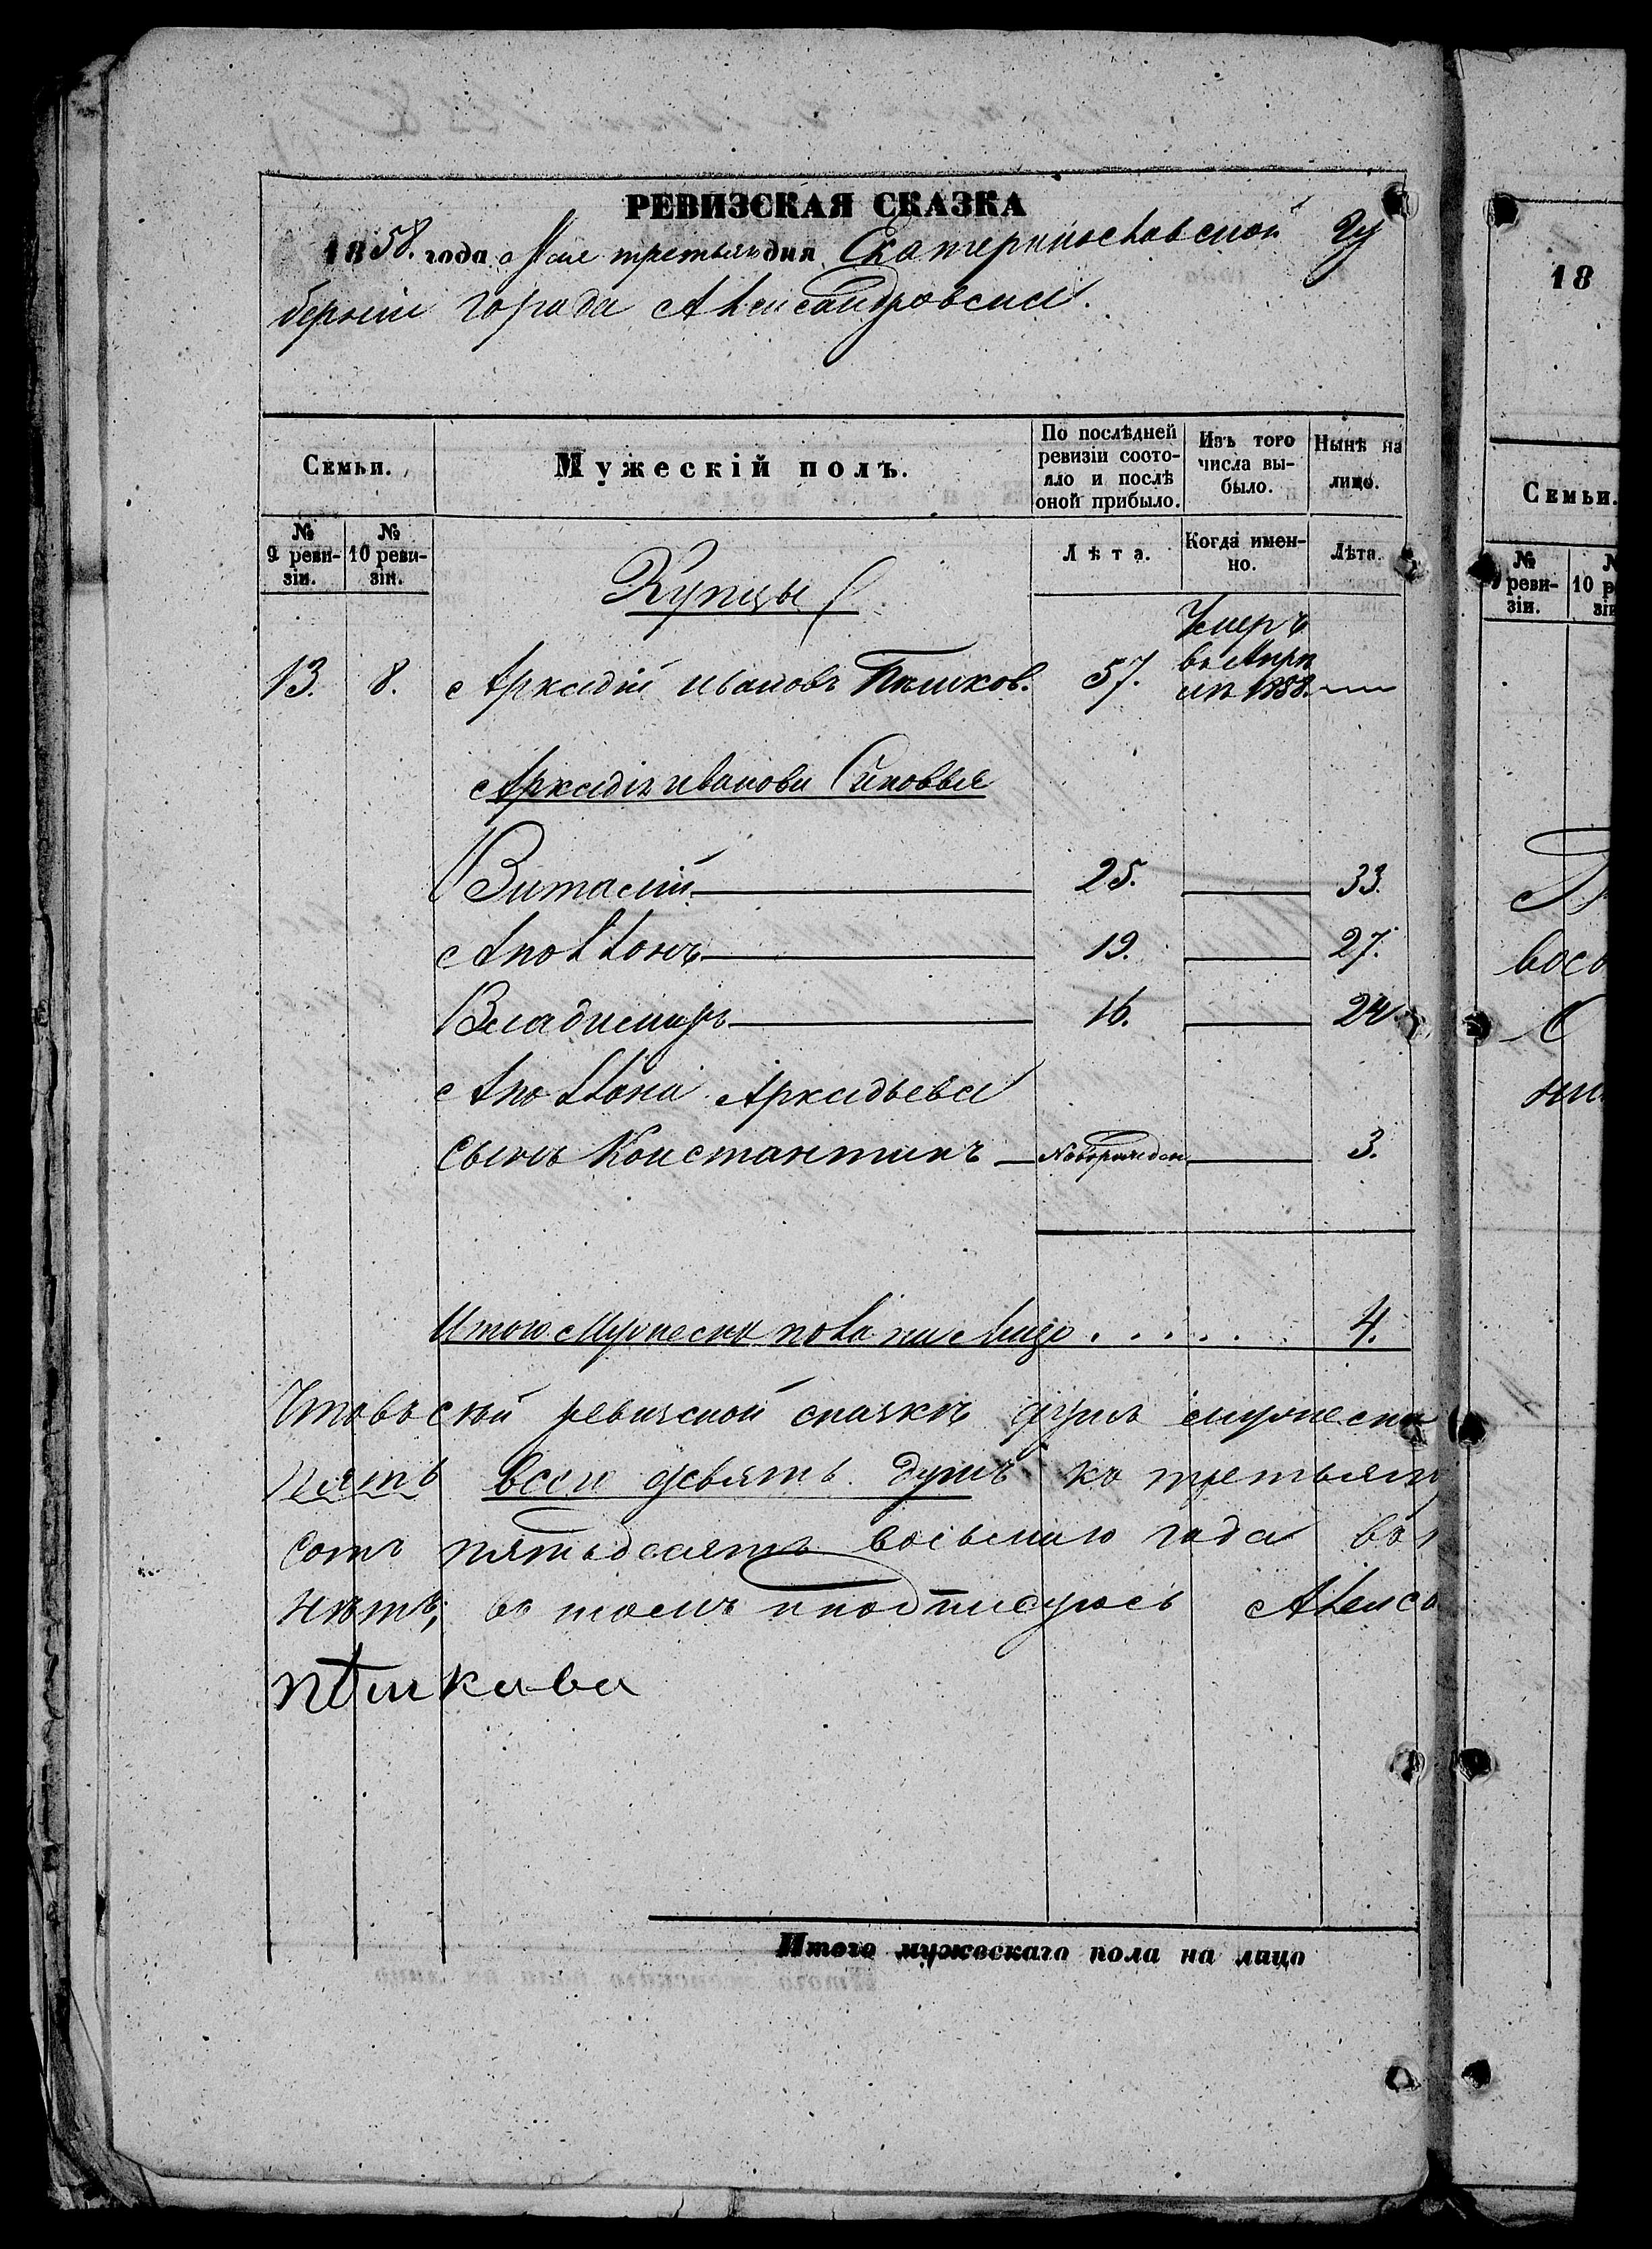 РЕВИЗСКАЯ СКАЗКА
1858. года Мая третьяго дня Екатеринославской Гу
берніи города Александровска.
Семьи.
Мужескій полъ.
По послѣдней ревизіи состояло и послѣ оной прибыло.
Изъ того числа выбыло.
Нынѣ на лицо.
№ 9 ревизіи.
№ 10 ревизіи.
Лѣта.
Когда именно.
Лѣта.
Купцы
13. 8. Аркадій Ивановъ Пѣшков. 57. Умеръ въ Апрѣлѣ 1858.
Аркадія Иванова Сыновья
Виталій 25. 33.
Аполлонъ 19. 27.
Владимиръ 16. 24
Аполлона Аркадьева
Сынъ Константинъ Новорожден 3.
Итого мужеска пола на лицо . . . . . . 4.
Что въ сей ревизской сказкѣ душъ мужеска
пять всего девять душъ къ третьяму
сотъ пятьдесятъ восьмаго года въ
нѣтъ; въ томъ и подписуюсь Алекса
пѣшкова
Итого мужескаго пола на лицо
18
Семьи.
№ 9 реви-
зіи.
10
восо